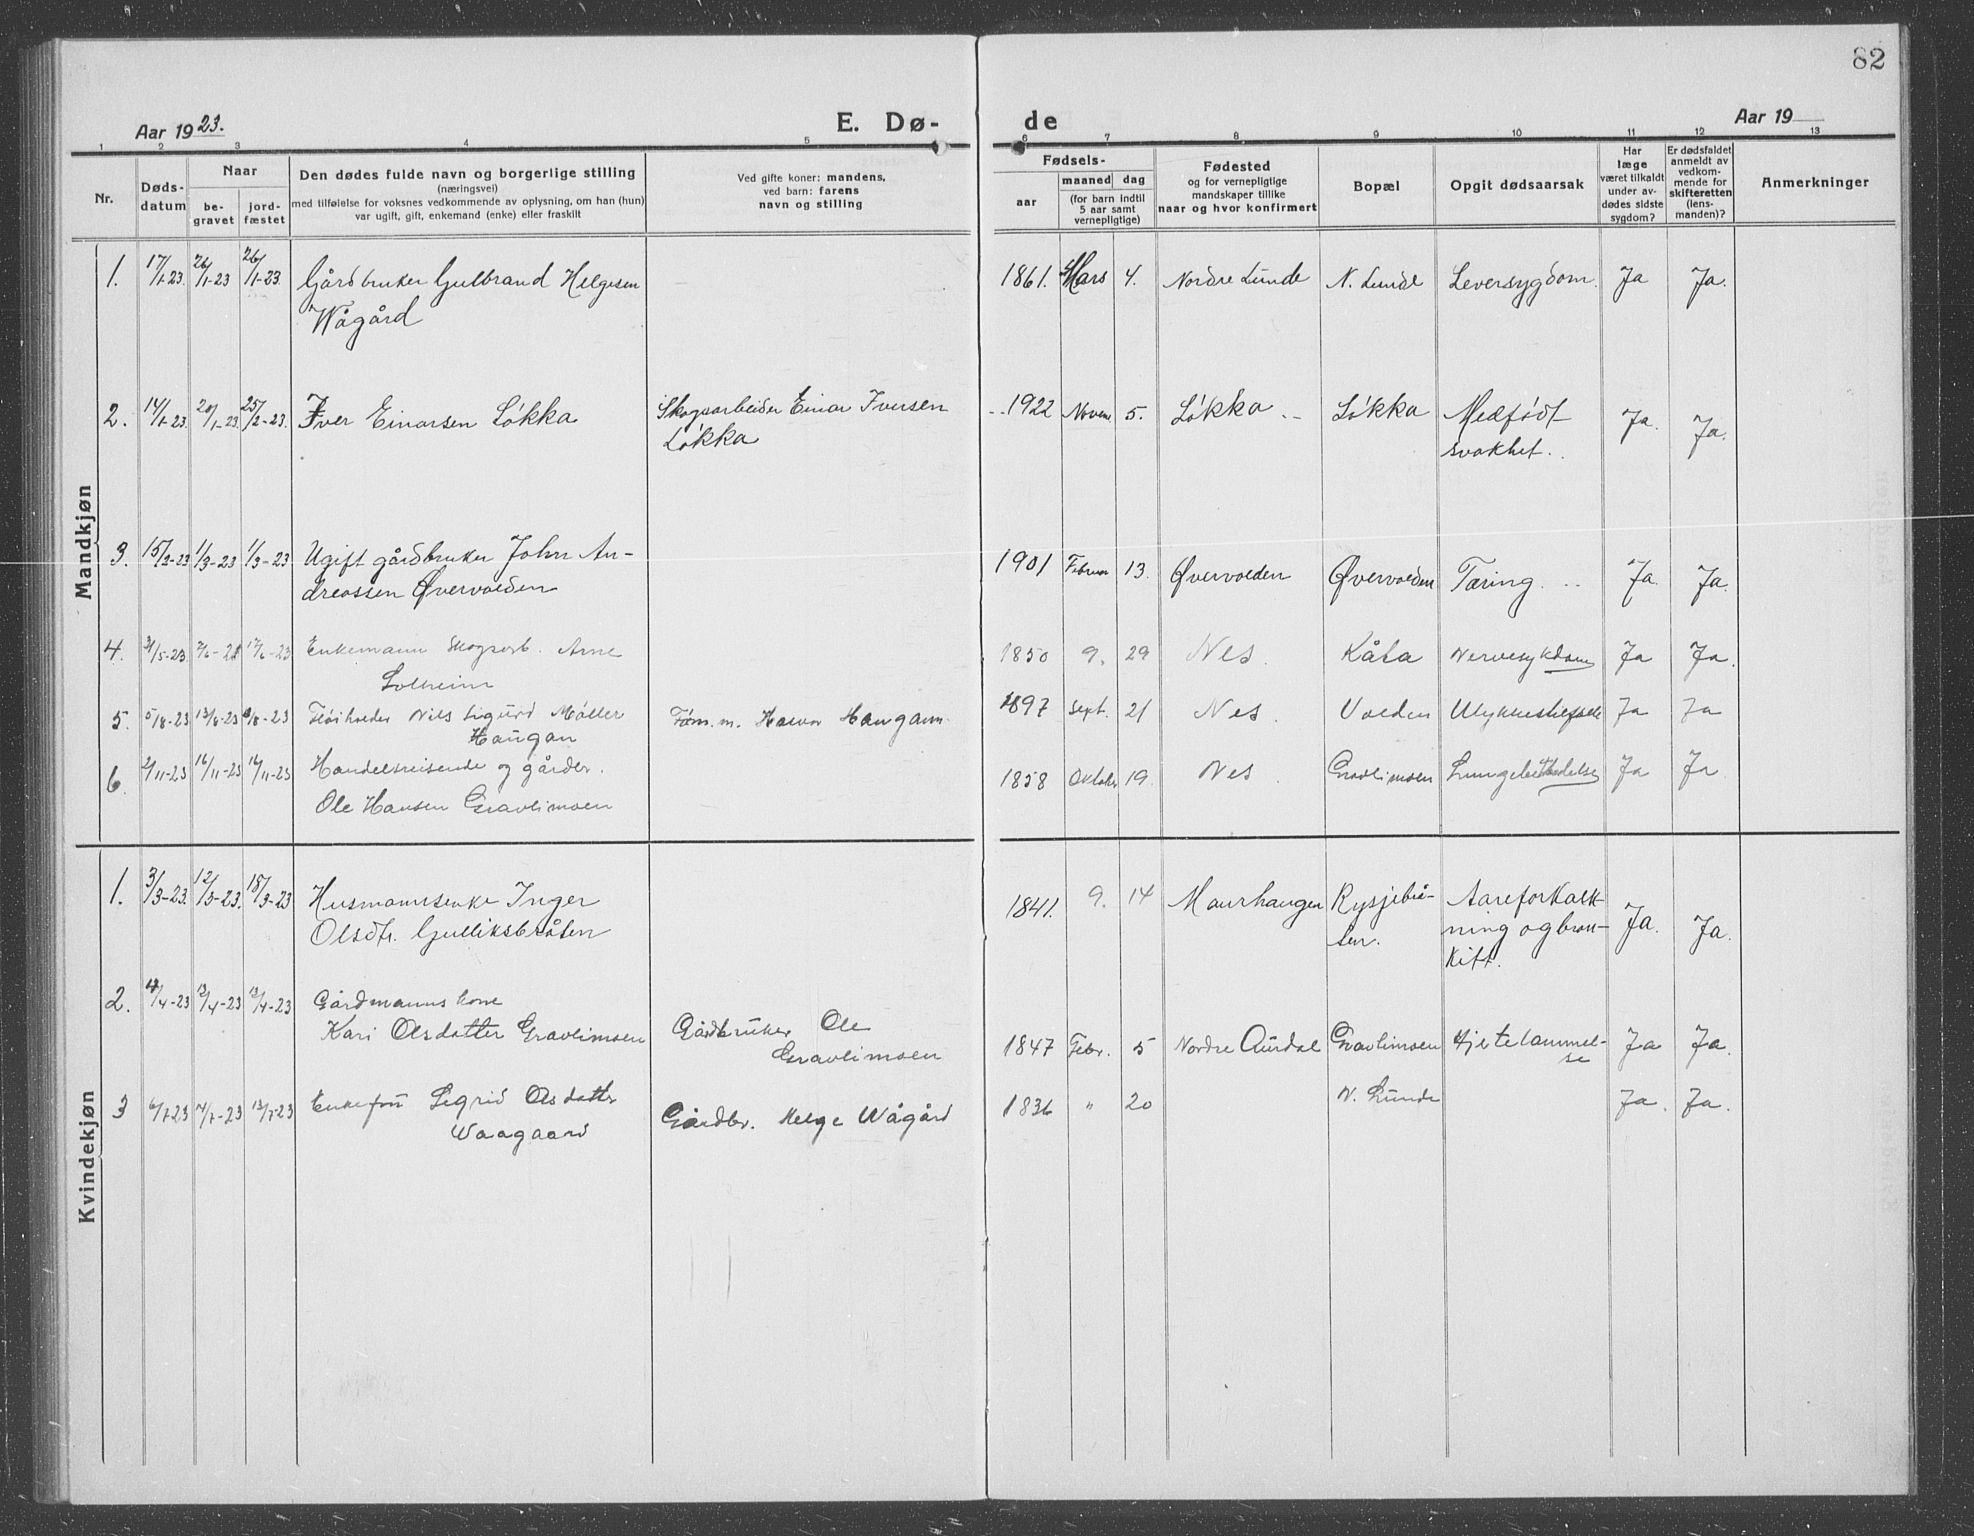 82
Aar 1923.
E. Dø-
de
Aar 19
1 2 3 4 5 6 7 8 9 10 11 12 13
Nr.
Døds-
datum
Naar
be-
gravet
jord-
fæstet
Den dødes fulde navn og borgerlige stilling
(næringsvei)
med tilføielse for voksnes vedkommende av oplysning, om han (hun)
var ugift, gift, enkemand (enke) eller fraskilt
Ved gifte koner: mandens,
ved barn: farens
navn og stilling
Fødsels-
aar
maaned dag
(for barn indtil
5 aar samt
vernepligtige)
Fødested
og for vernepligtige
mandskaper tillike
naar og hvor konfirmert
Bopæl
Opgit dødsaarsak
Har
læge
været tilkaldt
under av-
dødes sidste
sygdom?
Er dødsfaldet
anmeldt av
vedkom-
mende for
skifteretten
(lens-
manden)?
Anmerkninger
Mandkjøn
1. 17/1-23. 26/1-23 26/1-23. Gårdbruker Gulbrand Helgesen 1861. Mars 4. Nordre Lunde N. Lunde Leversygdom. Ja Ja.
Wågård
2. 14/1-23. 20/1-23. 25/2-23. Iver Einarsen Løkka Skogsarbeider Einar Iversen 1922 Novem. 5. Løkka Løkka Medfødt Ja. Ja.
Løkka svakhet.
3. 15/2-23 1/3-23 1/3-23 Ugift gårdbruker John An- 1901 Februar 13. Øvervolden Øvervolden Tæring. Ja. Ja.
dreassen Øvervolden
4. 31/5-23 17/6-23 Enkemann Skogsarb. Arne 1850 9. 29 Nes. Kåta Nervesykdom Ja Ja.
Solheim
5. 5/8-23 13/8-23 Nils Sigurd Møller Halvor Haugann. 1897 Sept. 21 Nes. Volden Ulykkestilfælle Ja Ja
Haugan
6. 2/11-23 16/11-23 16/11-23 Handelsreisende og gårdbr. 1858 Oktober 19. Nes. Gravlimoen Lungebetændelse Ja Ja
Ole Hansen Gravlimoen
Kvindekjøn
1. 3/3-23. 12/3-23. 18/3-23 Husmannsenke Inger 1841. 9. 14 Maurhaugen Rysjebrå- Aareforkalk- Ja. Ja.
Olsdtr. Gulliksbråten ten. ning og bron-
kitt.
2. 4/4-23 13/4-23 13/4-23 Gårdmanns kone
Kari Olsdatter Gravlimoen Gårdbruker Ole 1847 Febr. 5 Nordre Aurdal Gravlimoen Hjertelammel- Ja Ja.
Gravlimoen se
3 6/7-23 14/7-23 13/7-23 Enkefru Sigrid Olsdatter Gårdbr. Helge Wågård 1836 " 20 N. Lunde Ja. Ja.
Waagaard